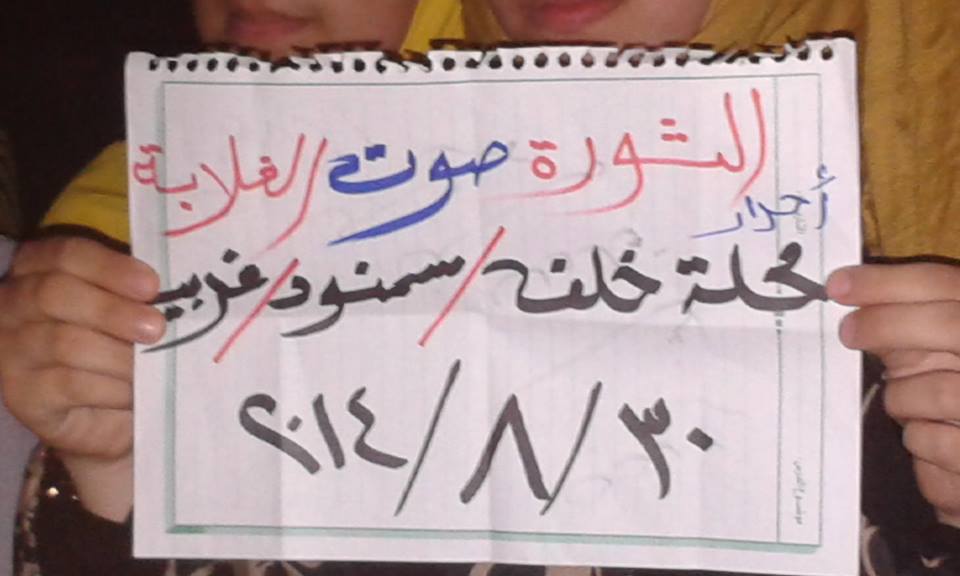 الثورة صوت الغلابة
أحرار
محلة خلف / سمنود / غربية
٣٠ / ٨ / ٢٠١٤